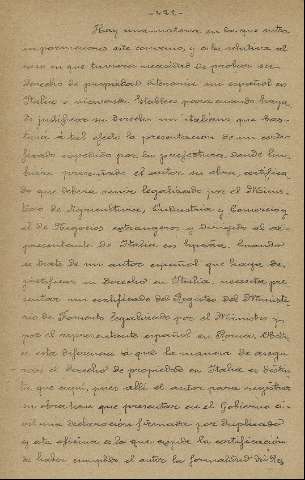 Hay una materia en la que entra
in formaciones este convenio, y es la relativa al
caso en que tuviera necesidad de probar su
derecho de propiedad literaria un español en
Italia o viceversa. Establece para cuando haya
de justificar su derecho un italiano que bas-
tará á tal efecto la presentación de un certi-
ficado expedido por la prefectura donde hu-
biera presentado el autor su obra, certifica-
do que deberá venir legalizado por el Minis-
terio de Agricultura, Industria y Comercio y
el de Negocios extrangeros y dirigido al re-
presentante de Italia en España. Cuando
se trate de un autor español que haya de
justificar su derecho en Italia, necesita pre-
sentar un certificado del Registro del Ministe-
rio de Fomento legalizado por el Ministro y
por el representante español en Roma.
esta diferencia á que la manera de asegu-
rar el derecho de propiedad en Italia es distin-
ta que aquí, pues allí el autor para registrar
su obra tiene que presentar en el Gobierno ci-
vil una declaración firmada por duplicado
y esta oficina es la que expide la certificación
de haber cumplido el autor la formalidad del Re